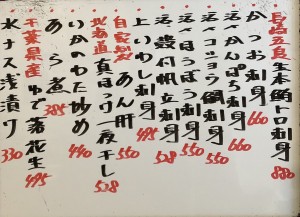 長崎五島 生本鮪トロ刺身 880
かつお刺身 660
活かんぱち刺身 660
活コショウ鯛刺身 550
活ほうぼう刺身 550
活殻付帆立刺身 528
上いわし刺身 495
自家製 あん肝 550
北海道 真ほっけ一夜干し 528
いかのわた炒め 440
あら煮 385
千葉県産 ゆで落花生 495
水ナス浅漬け 330